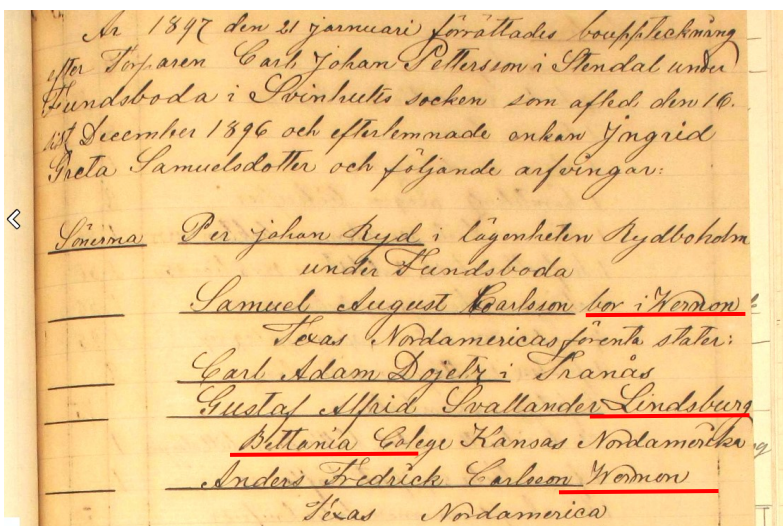 År 1897 den 21 januari förrättades bouppteckning
efter Torparen Carl Johan Pettersson i Stendal under
Fundsboda i Svinhults socken som afled den 16.
sist December 1896 och efterlemnade enkan Yngrid
Greta Samuelsdotter och följande arfvingar:
Sönerna Per Johan Ryd i lägenheten Rydboholm
under Fundsboda
Samuel August Carlsson bor i Wernon
Texas Nordamericas förenta stater;
Carl Adam Dojetz i Tranås
Gustaf Alfrid Svallander Lindsburg
Bettania Colege Kansas Nordamerika
Anders Fredrick Carlsson Wernon
Texas Nordamerica